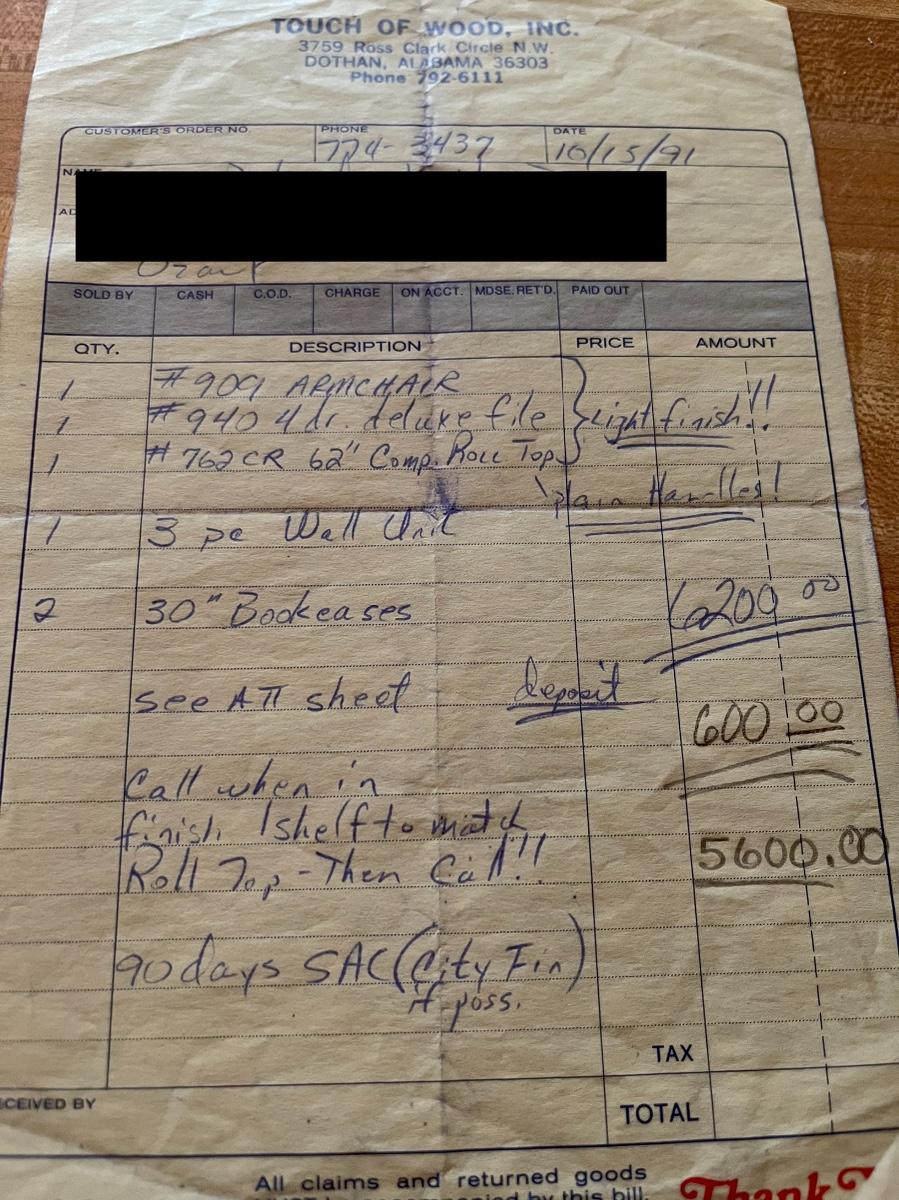 TOUCH OF WOOD, INC.
3759 Ross Clark Circle N.W.
DOTHAN, ALABAMA 36303
Phone 792-6111
CUSTOMER'S ORDER NO. PHONE DATE
774-3437 10/15/91
Ozark
SOLD BY CASH C.O.D. CHARGE ON ACCT. MDSE. RET'D. PAID OUT
QTY. DESCRIPTION PRICE AMOUNT
1 #909 ARMCHAIR
1 #940 4 dr. deluxe file Light finish!!
1 #762CR 62" Comp. Roll Top
plain Handles!
1 3 pc Wall Unit
2 30" Bookcases 6200 00
see ATT sheet deposit
600 00
Call when in
finish 1 shelf to match
Roll Top - Then Call!! 5600.00
90 days SAC (City Fin)
if poss.
TAX
CEIVED BY TOTAL
All claims and returned goods
MUST be accompanied by this bill.
Thank